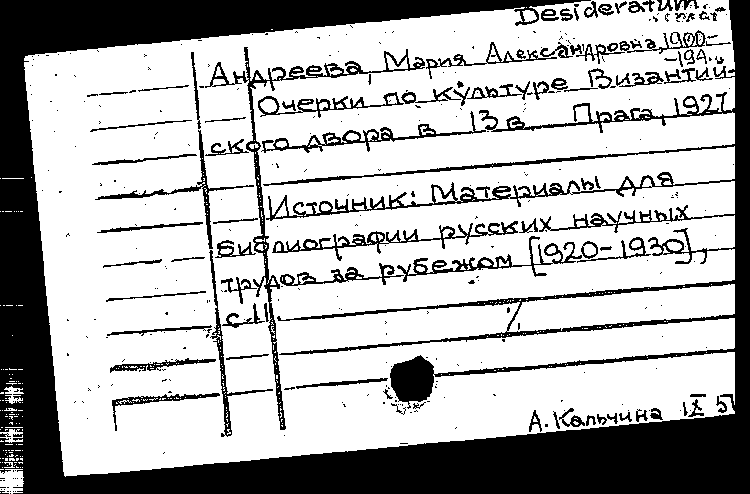 Desideratum.
Андреева, Мария Александровна, 1900-
-194.
Очерки по культуре Византий-
ского двора в 13 в. Прага, 1927.
Источник: Материалы для
библиографии русских научных
трудов за рубежом [1920-1930],
с 11.
А. Кальчина IX 5